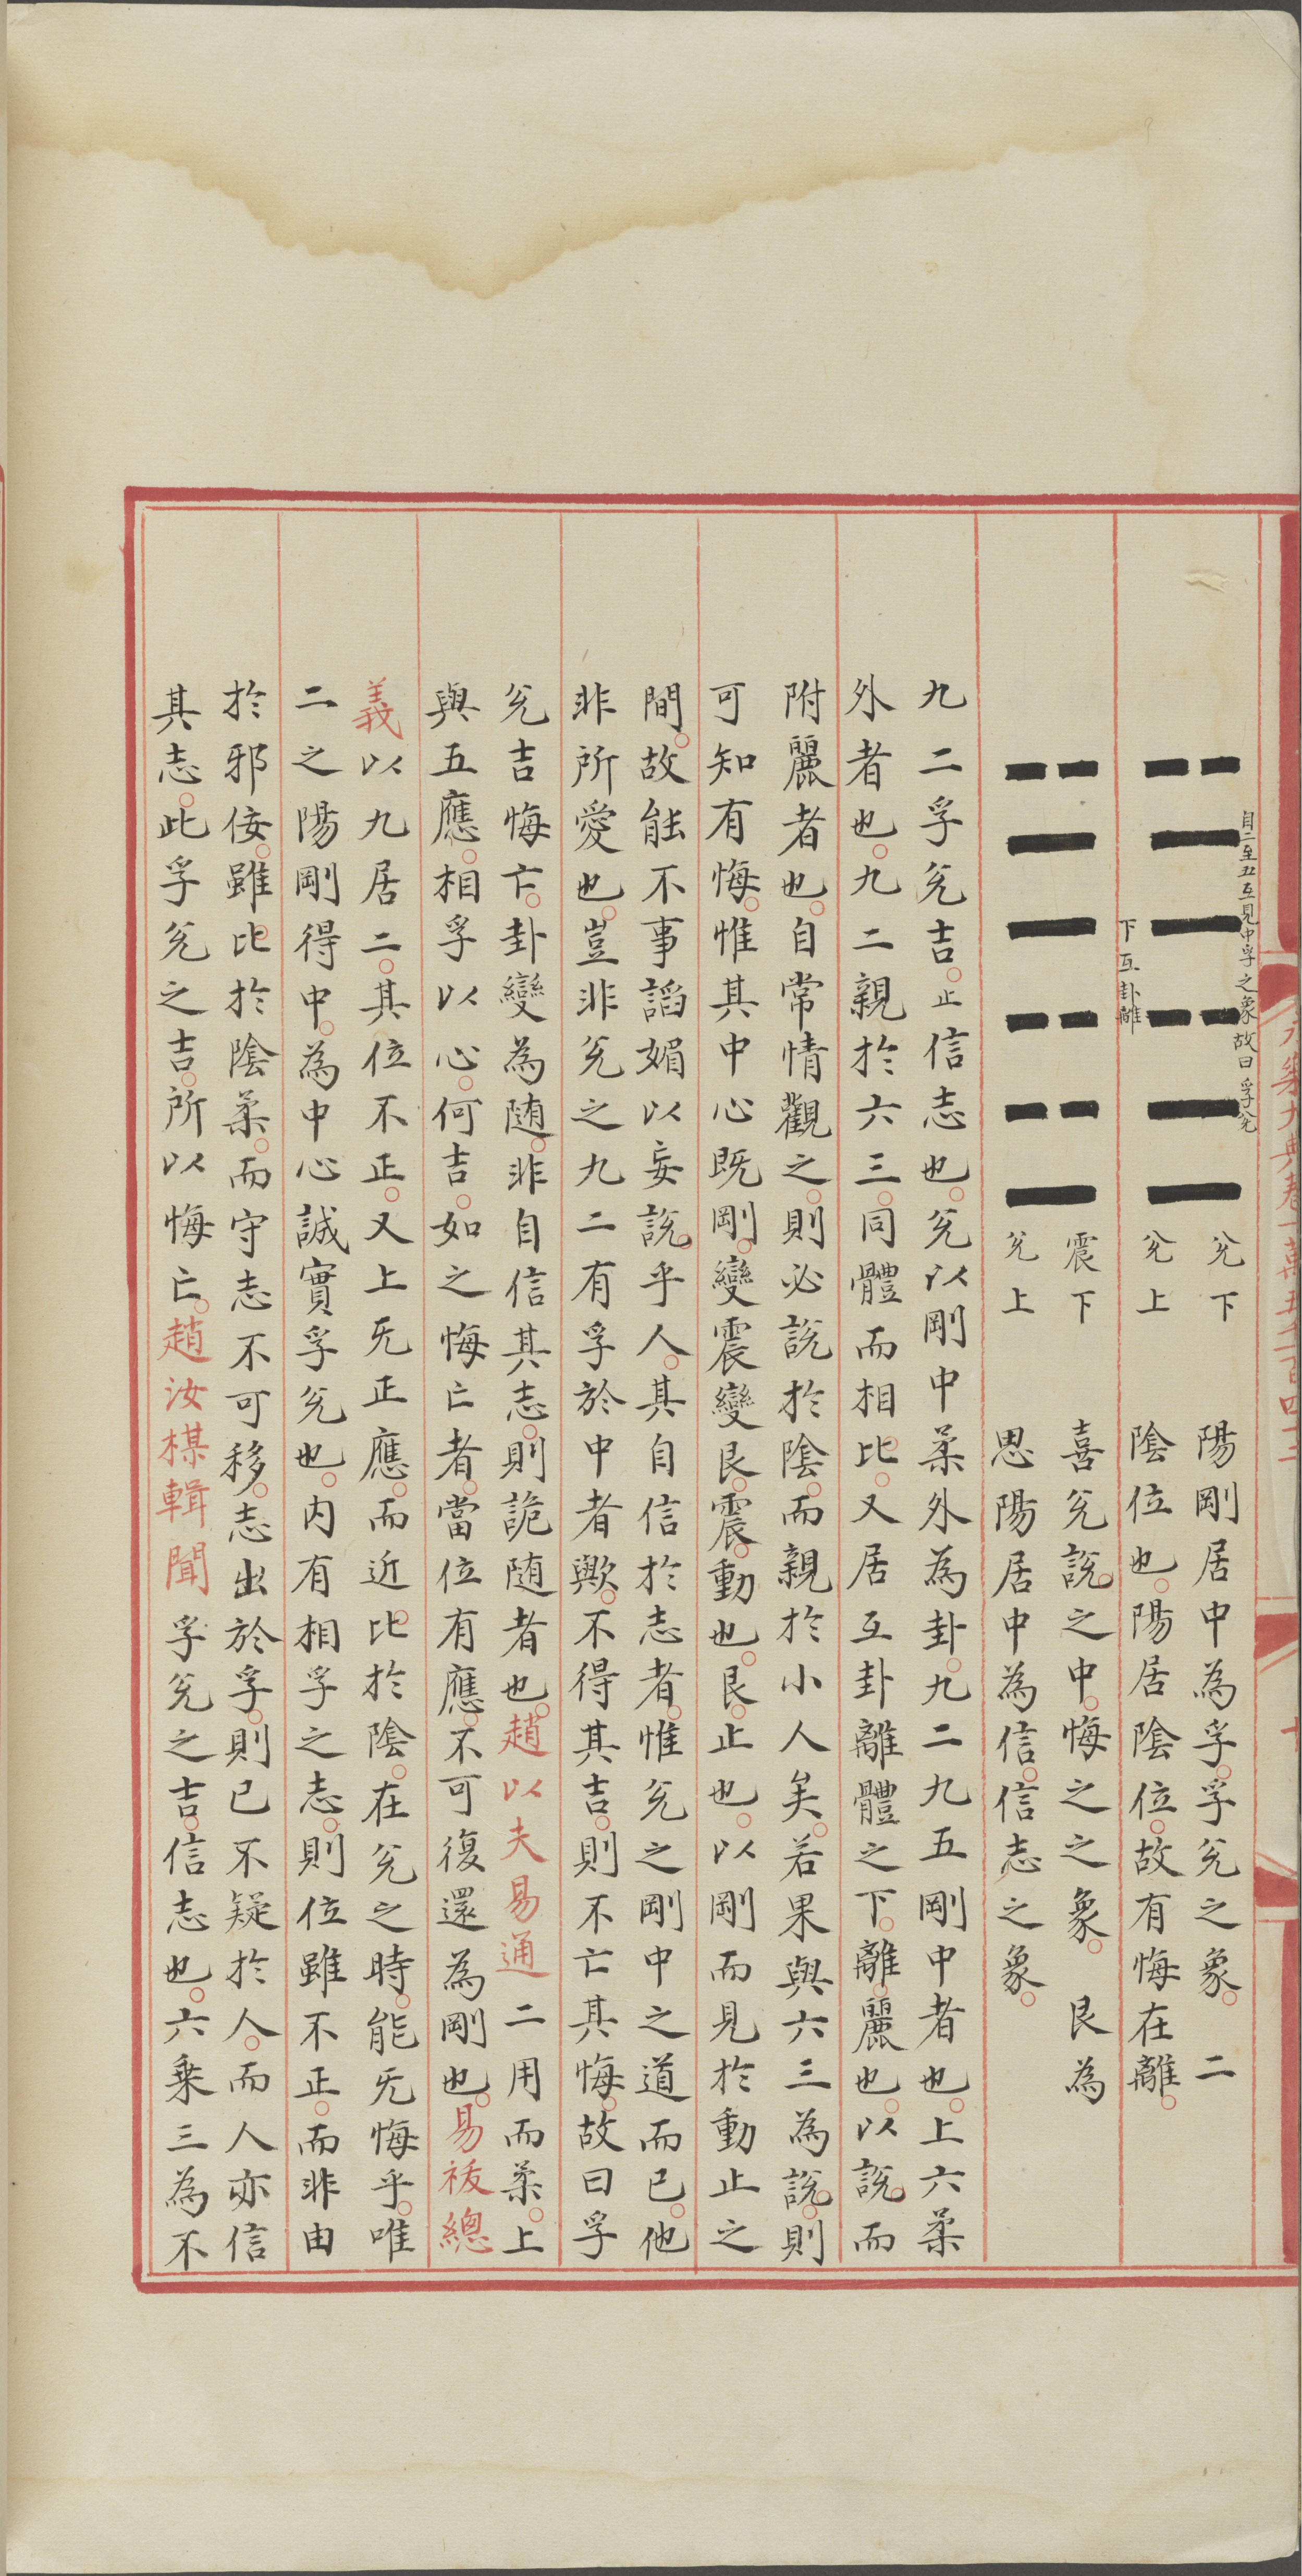 自二至五互見中孚之象故曰孚兊
兊下　陽剛居中為孚孚兊之象　二
兊上　陰位也陽居陰位故有悔在離
下互卦離
震下　喜兊說之中悔之之象　艮為
兊上　思陽居中為信信志之象
九二孚兊吉止信志也兊以剛中柔外為卦九二九五剛中者也上六柔
外者也九二親於六三同體而相比又居互卦離體之下離麗也以說而
附麗者也自常情觀之則必說於陰而親於小人矣若果與六三為說則
可知有悔惟其中心既剛變震變艮震動也艮止也以剛而見於動止之
間故能不事謟媚以妄說乎人其自信於志者惟兊之剛中之道而已他
非所愛也豈非兊之九二有孚於中者歟不得其吉則不亡其悔故曰孚
兊吉悔亡卦變為随非自信其志則詭随者也趙以夫易通二用而柔上
與五應相孚以心何吉如之悔亡者當位有應不可復還為剛也易袚總
義以九居二其位不正又上旡正應而近比於陰在兊之時能旡悔乎唯
二之陽剛得中為中心誠實孚兊也内有相孚之志則位雖不正而非由
於邪佞雖比於陰柔而守志不可移志出於孚則已不疑於人而人亦信
其志此孚兊之吉所以悔亡趙汝楳輯聞孚兊之吉信志也六乗三為不